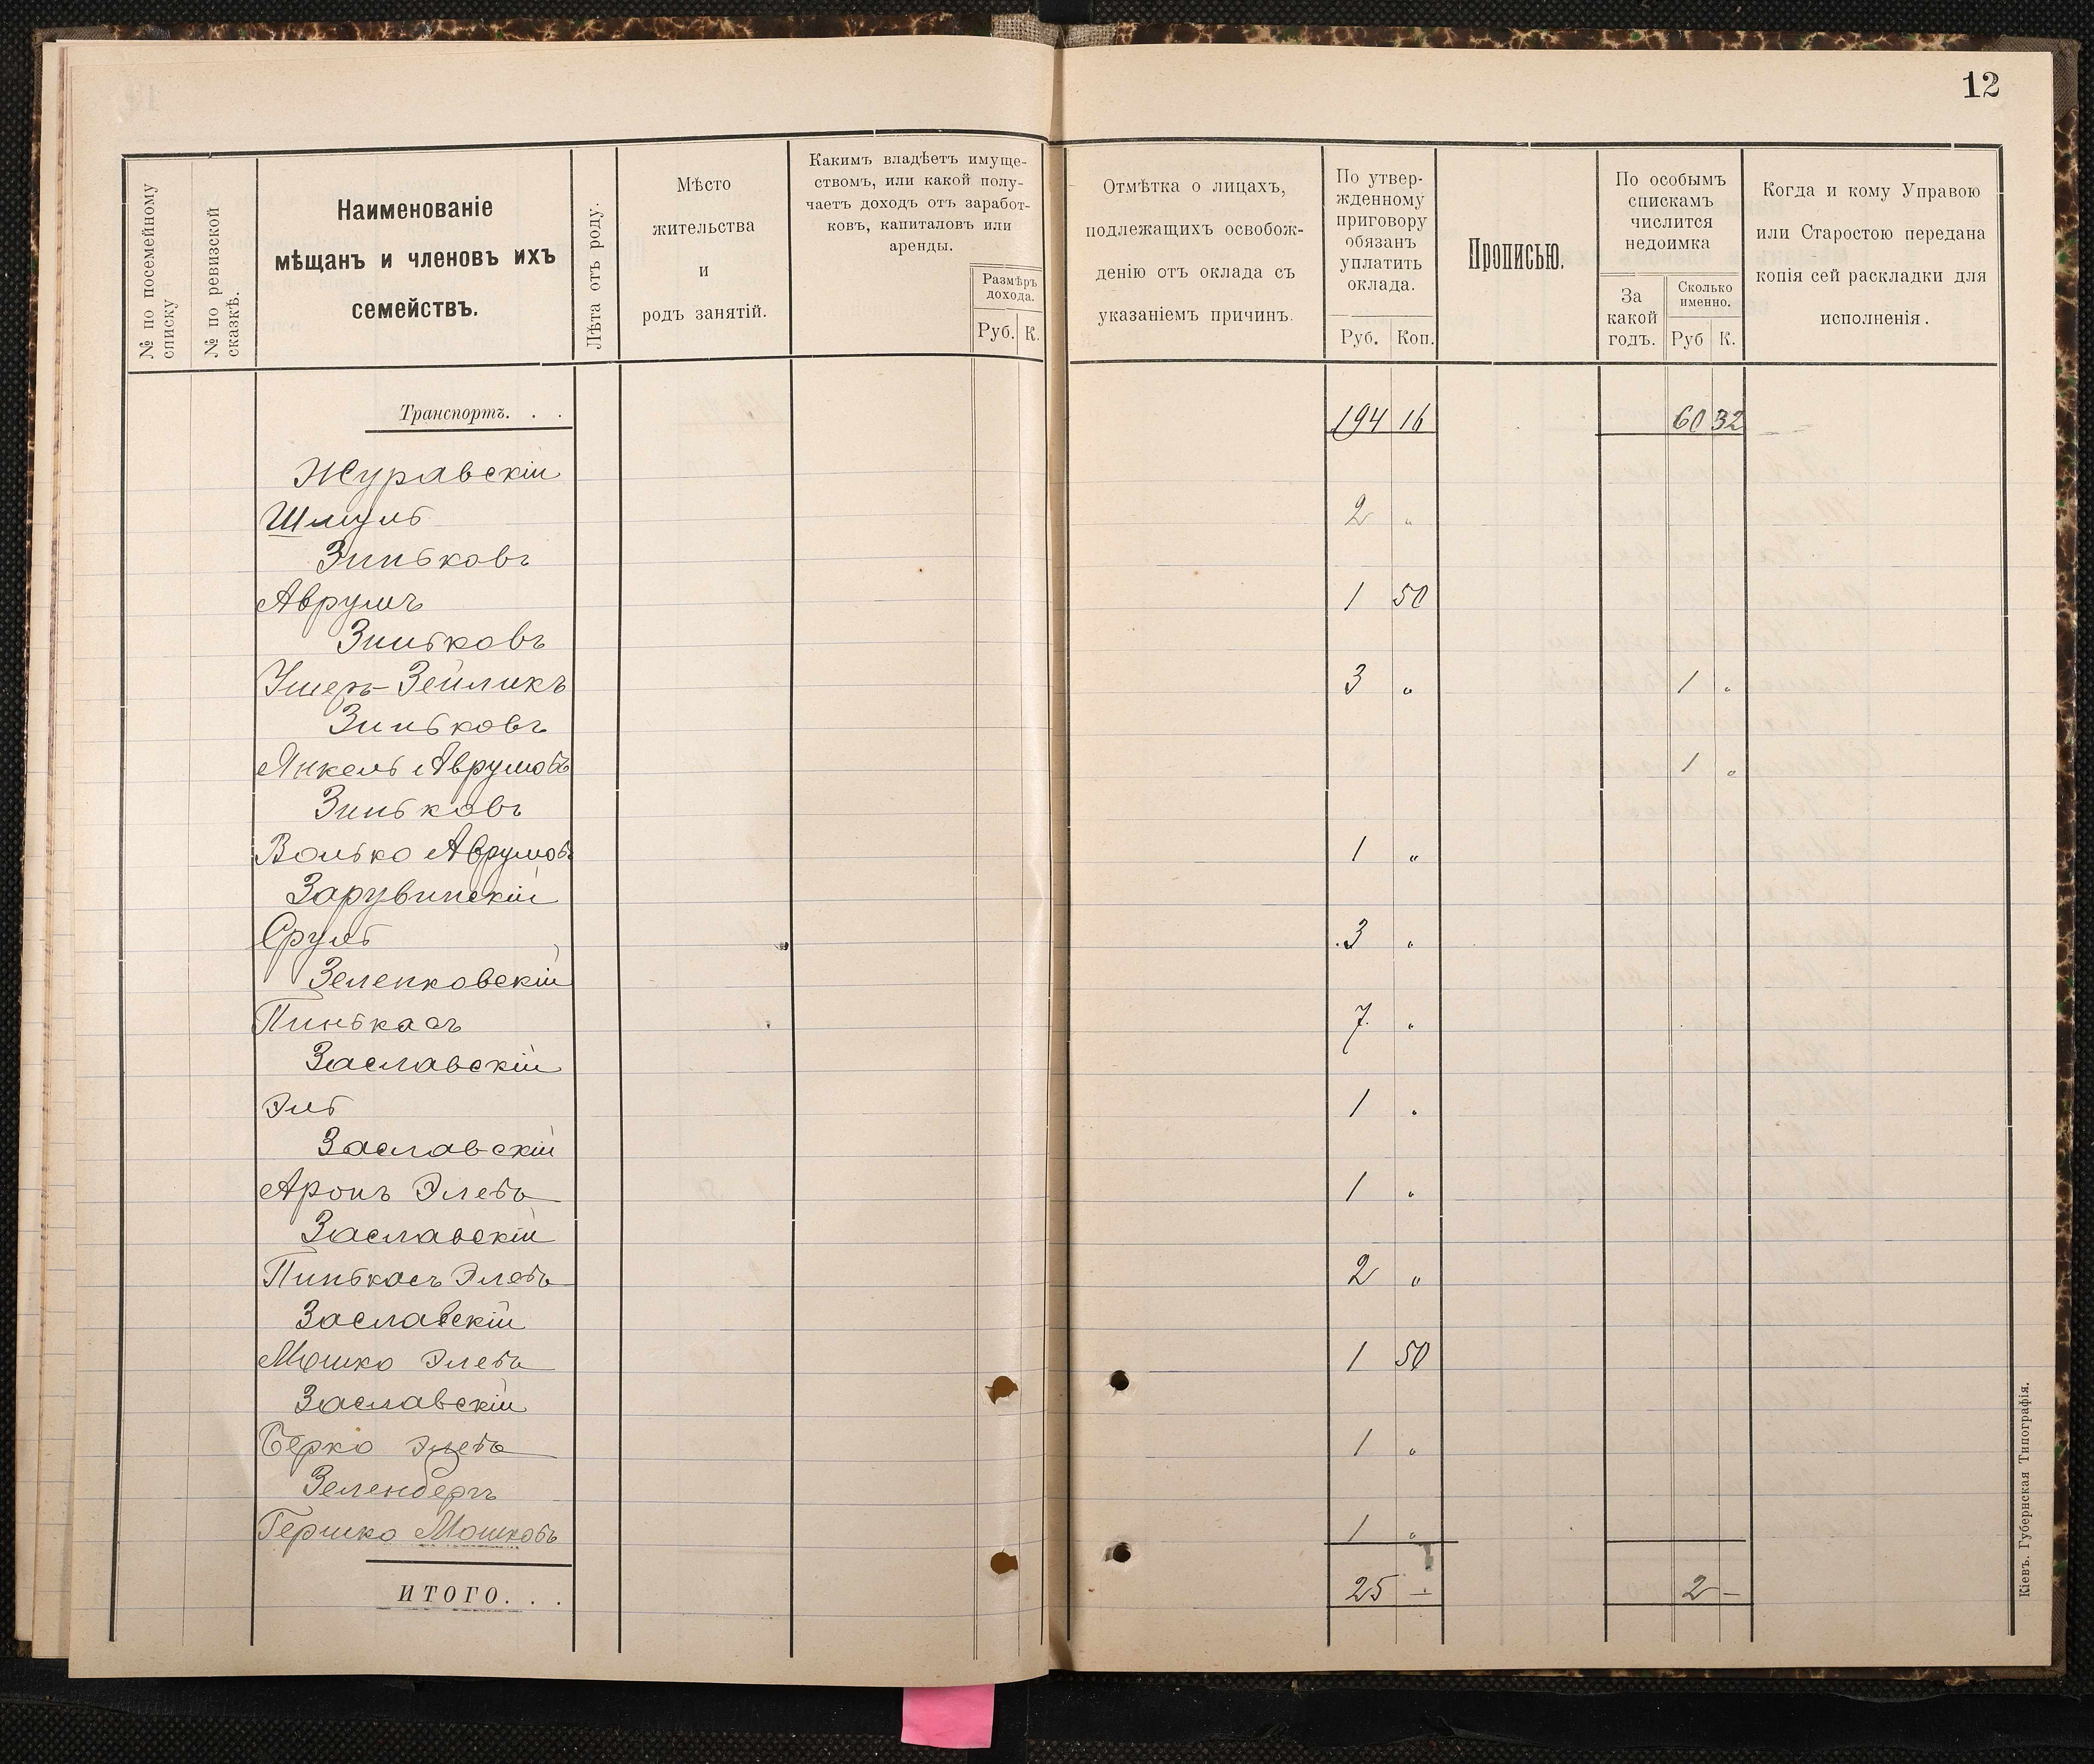 12
№ по посемейному списку
№ по ревизской сказкѣ.
Наименованіе
мѣщанъ и членовъ ихъ
семействъ.
Лѣта отъ роду.
Мѣсто
жительства
и
родъ занятій.
Какимъ владѣетъ имуще-
ствомъ, или какой полу-
чаетъ доходъ отъ заработ-
ковъ, капиталовъ или
аренды.
Размѣръ
дохода.
Руб. К.
Отмѣтка о лицахъ,
подлежащихъ освобож-
денію отъ оклада съ
указаніемъ причинъ.
По утвер-
жденному
приговору
обязанъ
уплатить
оклада.
Руб. Коп.
Прописью.
По особымъ
спискамъ
числится
недоимка
За
какой
годъ.
Сколько
именно.
Руб К.
Когда и кому Управою
или Старостою передана
копія сей раскладки для
исполненія.
Транспортъ. . . 194 16 60 32
Журавскій
Шмуль 2 "
Зиньковъ
Аврумъ 1 50
Зиньковъ
Ушеръ-Зейликъ 3 " 1 "
Зиньковъ
Янкель Аврумовъ 1 "
Зиньковъ
Волько Аврумовъ 1 "
Зарубинскій
Сруль 3 "
Зеленковскій
Пинькасъ 7 "
Заславскій
Эль 1 "
Заславскій
Аронъ Элевъ 1 "
Заславскій
Пинькасъ Элевъ 2 "
Заславскій
Мошко Элевъ 1 50
Заславскій
Берко Элевъ 1 "
Зеленбергъ
Гершко Мошковъ 1 "
ИТОГО. . . 25 — 2 —
Кіевъ. Губернская Типографія.